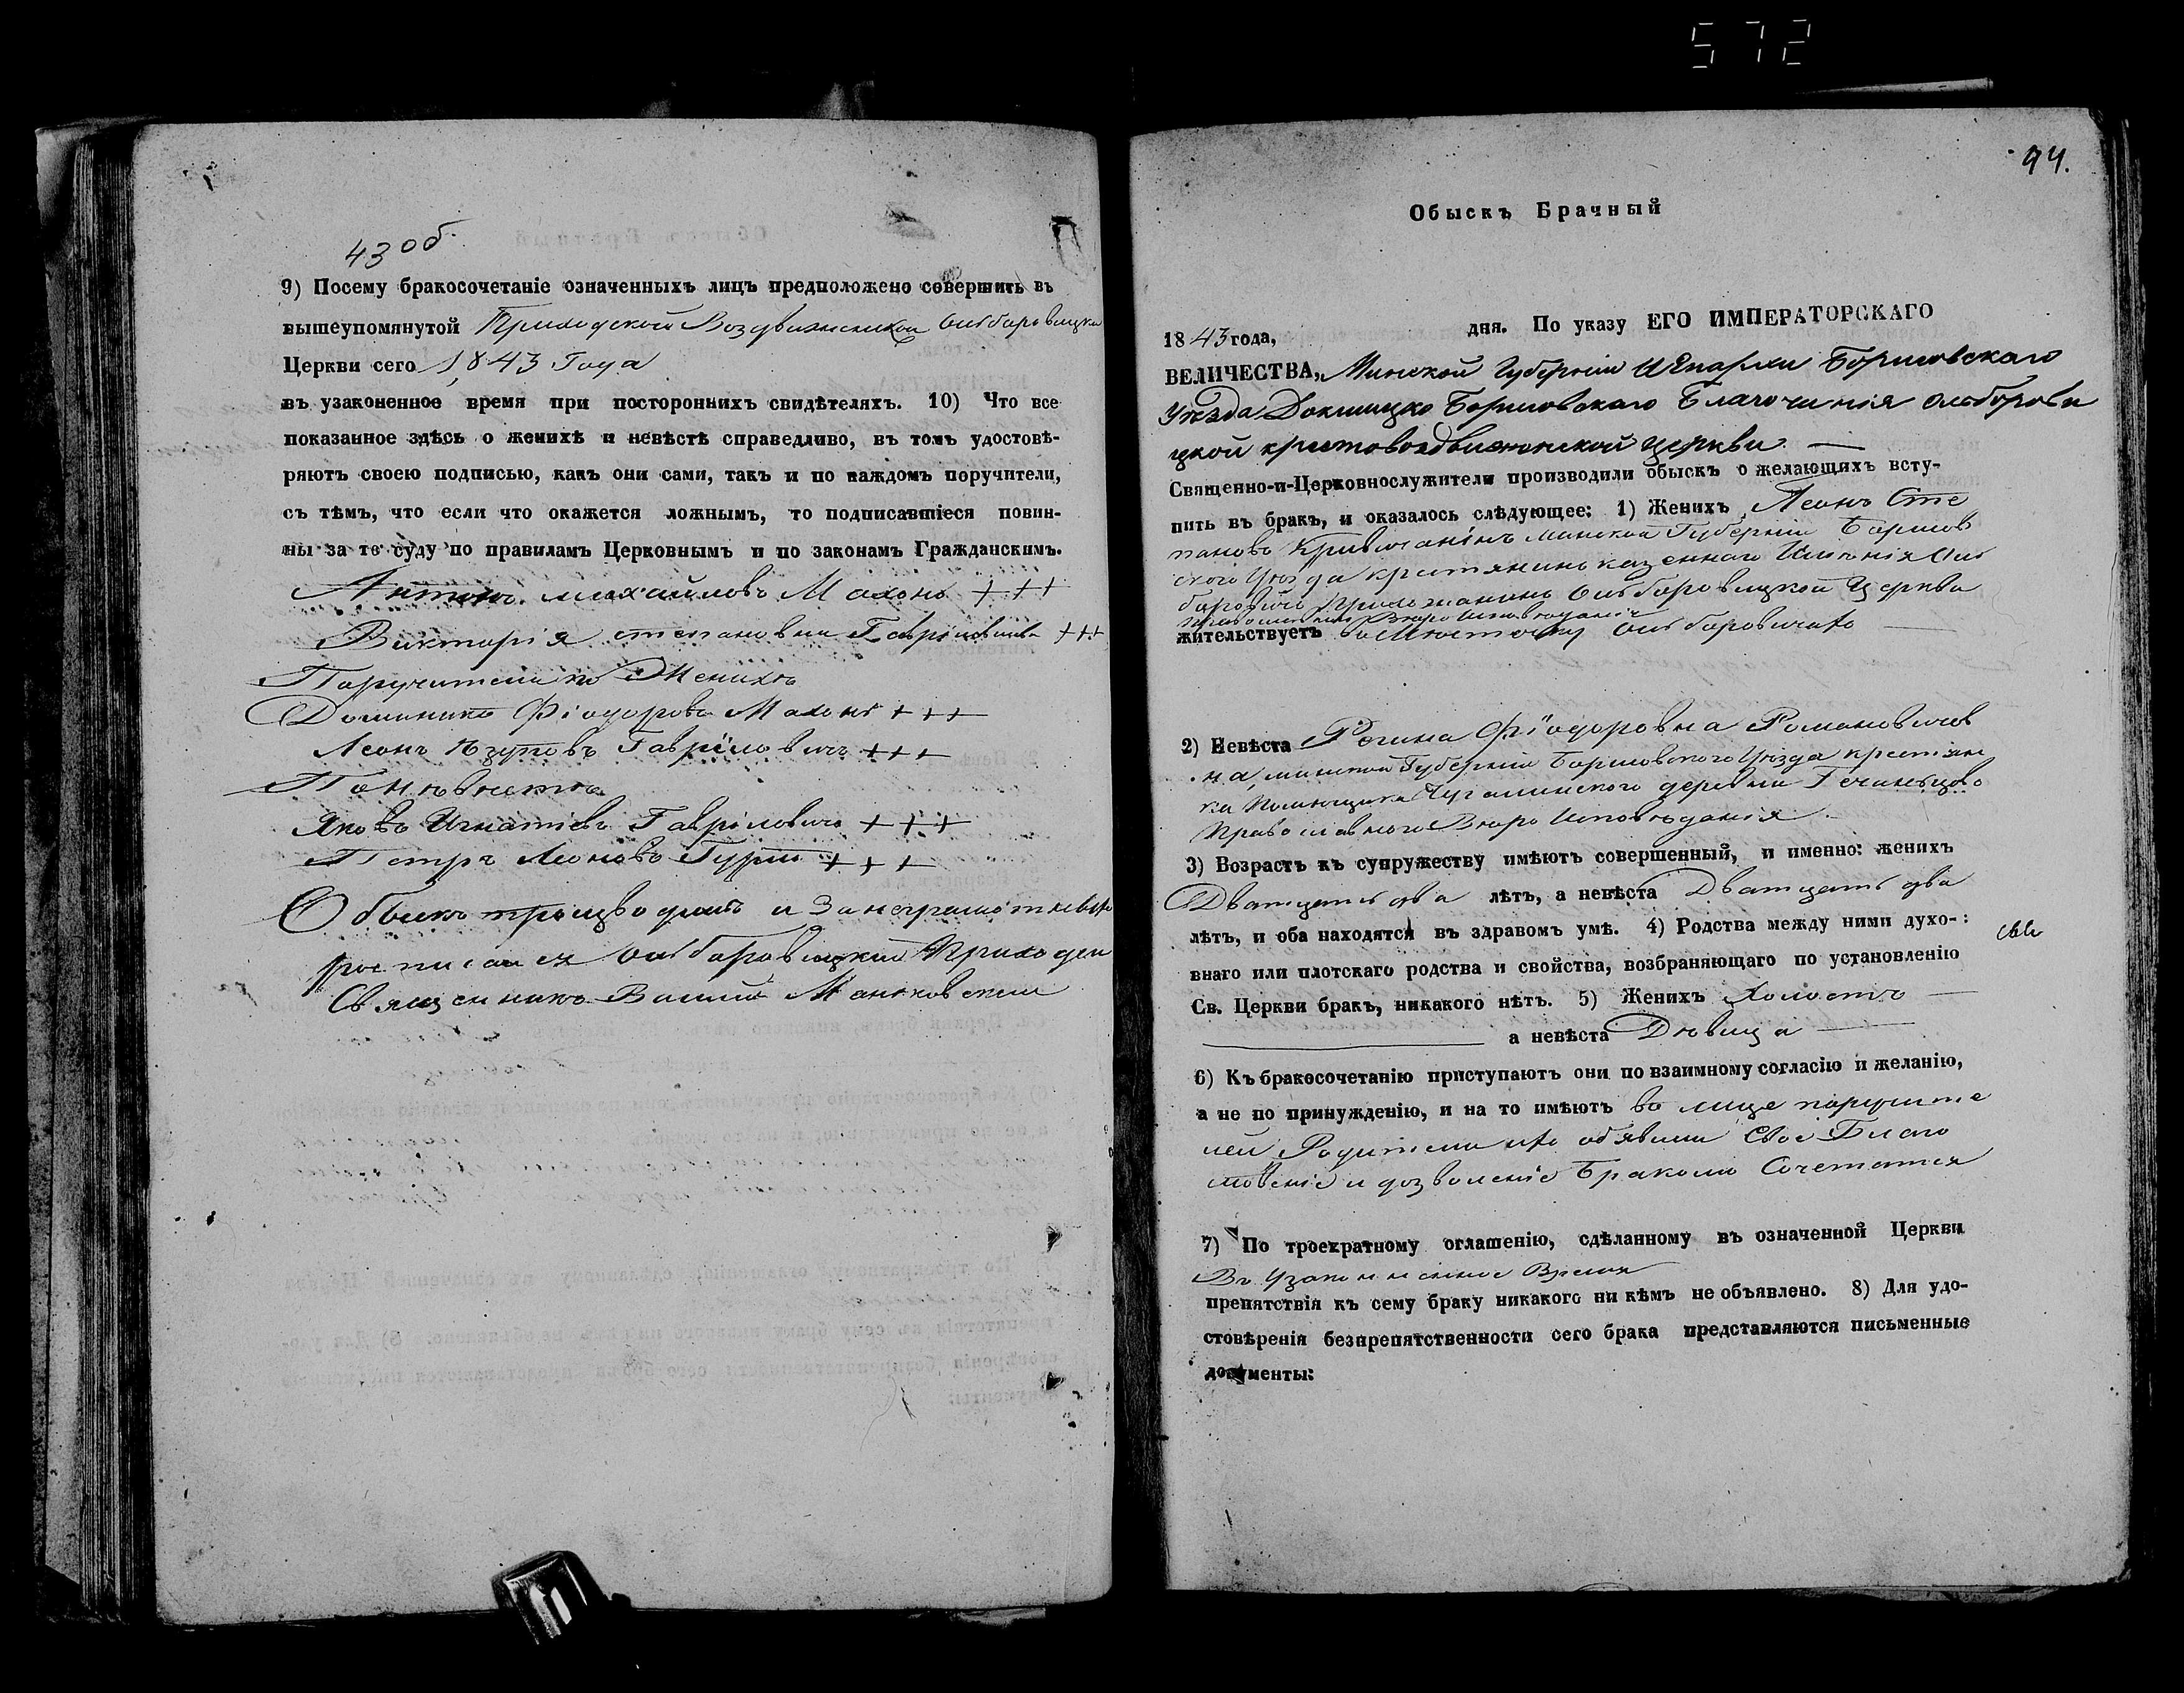 572
43 об.
9) Посему бракосочетаніе означенныхъ лицъ предположено совершить въ
вышеупомянутой Приходской Воздвиженской
Церкви сего 1843 Года
въ узаконенное время при постороннихъ свидѣтеляхъ. 10) Что все
показанное здѣсь о женихѣ и невѣстѣ справедливо, въ томъ удостовѣ-
ряютъ своею подписью, какъ они сами, такъ и по каждомъ поручители,
съ тѣмъ, что если что окажется ложнымъ, то подписавшіеся повин-
ны за то суду по правиламъ Церковнымъ и по законамъ Гражданскимъ.
Антонъ Михайловъ Махонь +++
Викторія степановна +++
Поручители по Женихѣ
Доминикъ Фіодоровъ Махонь +++
Леонъ Гавріловичъ +++
По невѣстѣ
Яковъ Игнатіевъ Гавріловичъ +++
Петръ Леоновъ +++
Обыскъ производилъ и За неграмотныхъ
росписался Приходски
Священникъ
94.
Обыскъ Брачный
1843 года, дня. По указу ЕГО ИМПЕРАТОРСКАГО
ВЕЛИЧЕСТВА, Минской Губерніи И Епархіи Борисовскаго
Уѣзда Докшицко Борисовскаго Благочинія Ольборови
цкой крестовоздвиженской церкви
Священно-и-Церковнослужители производили обыскъ о желающихъ всту-
пить въ бракъ, и оказалось слѣдующее: 1) Женихъ Леонъ Сте
пановъ Минской Губерніи Борисов
ского Уѣзда крестьянинъ казеннаго Имѣнія Оль
боровичъ Прихожанинъ Ольборовицкой Церкви
Вѣро Исповѣданія
жительствуетъ во Ольборовичахъ
2) Невѣста Регина Фіодоровна Романовичов
на, минской Губерніи Борисовского Уѣзда крестьян
ка Помѣщика деревни
Православного Вѣро Исповѣданія
3) Возрастъ къ супружеству имѣютъ совершенный, и именно: женихъ
Дватцать два лѣтъ, а невѣста Дватцать два
лѣтъ, и оба находятся въ здравомъ умѣ. 4) Родства между ними духо-:
внаго или плотскаго родства и свойства, возбраняющаго по установленію
Св. Церкви бракъ, никакого нѣтъ. 5) Женихъ Холостъ
а невѣста Дѣвица
6) Къ бракосочетанію приступаютъ они по взаимному согласію и желанію,
а не по принужденію, и на то имѣютъ во лице поручите
лей Родители ихъ объявили Свое Благо
словеніе и дозволеніе Бракомъ Сочетатся
7) По троекратному оглашенію, сдѣланному въ означенной Церкви
Въ Узаконненное Время
препятствія къ сему браку никакого ни кѣмъ не объявлено. 8) Для удо-
стовѣренія безпрепятственности сего брака представляются письменные
документы: